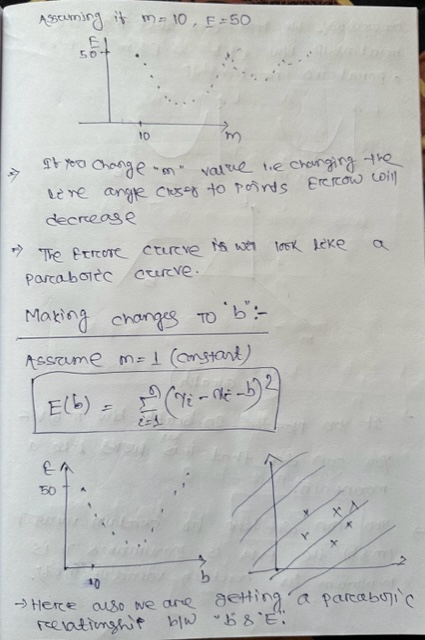 Assuming if m = 10, E = 50
E
50
10
m
⇒ If you change "m" value i.e changing the
line angle closer to points Error will
decrease
⇒ The Error curve is will look like a
parabolic curve.
Making changes to "b" :-
Assume m = 1 (constant)
E(b) = Σ i=1 n (yi - xi - b)²
E
50
10
b
→ Here also we are getting a parabolic
relationship b/w "b & E".